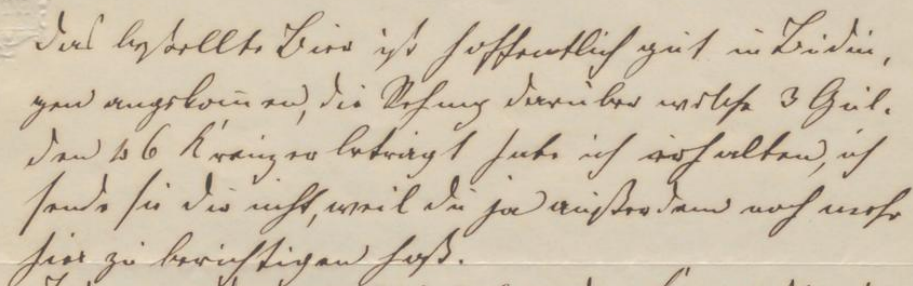 das bestellte Bier ist hoffentlich gut in Büdin,
gen angekom̅en, die Rechnung darüber welche 3 Gul-
den 6 Kreuzer beträgt habe ich erhalten, ich
sende sie dir nicht, weil du ja außerdem noch mehr
hier zu berichtigen hast.